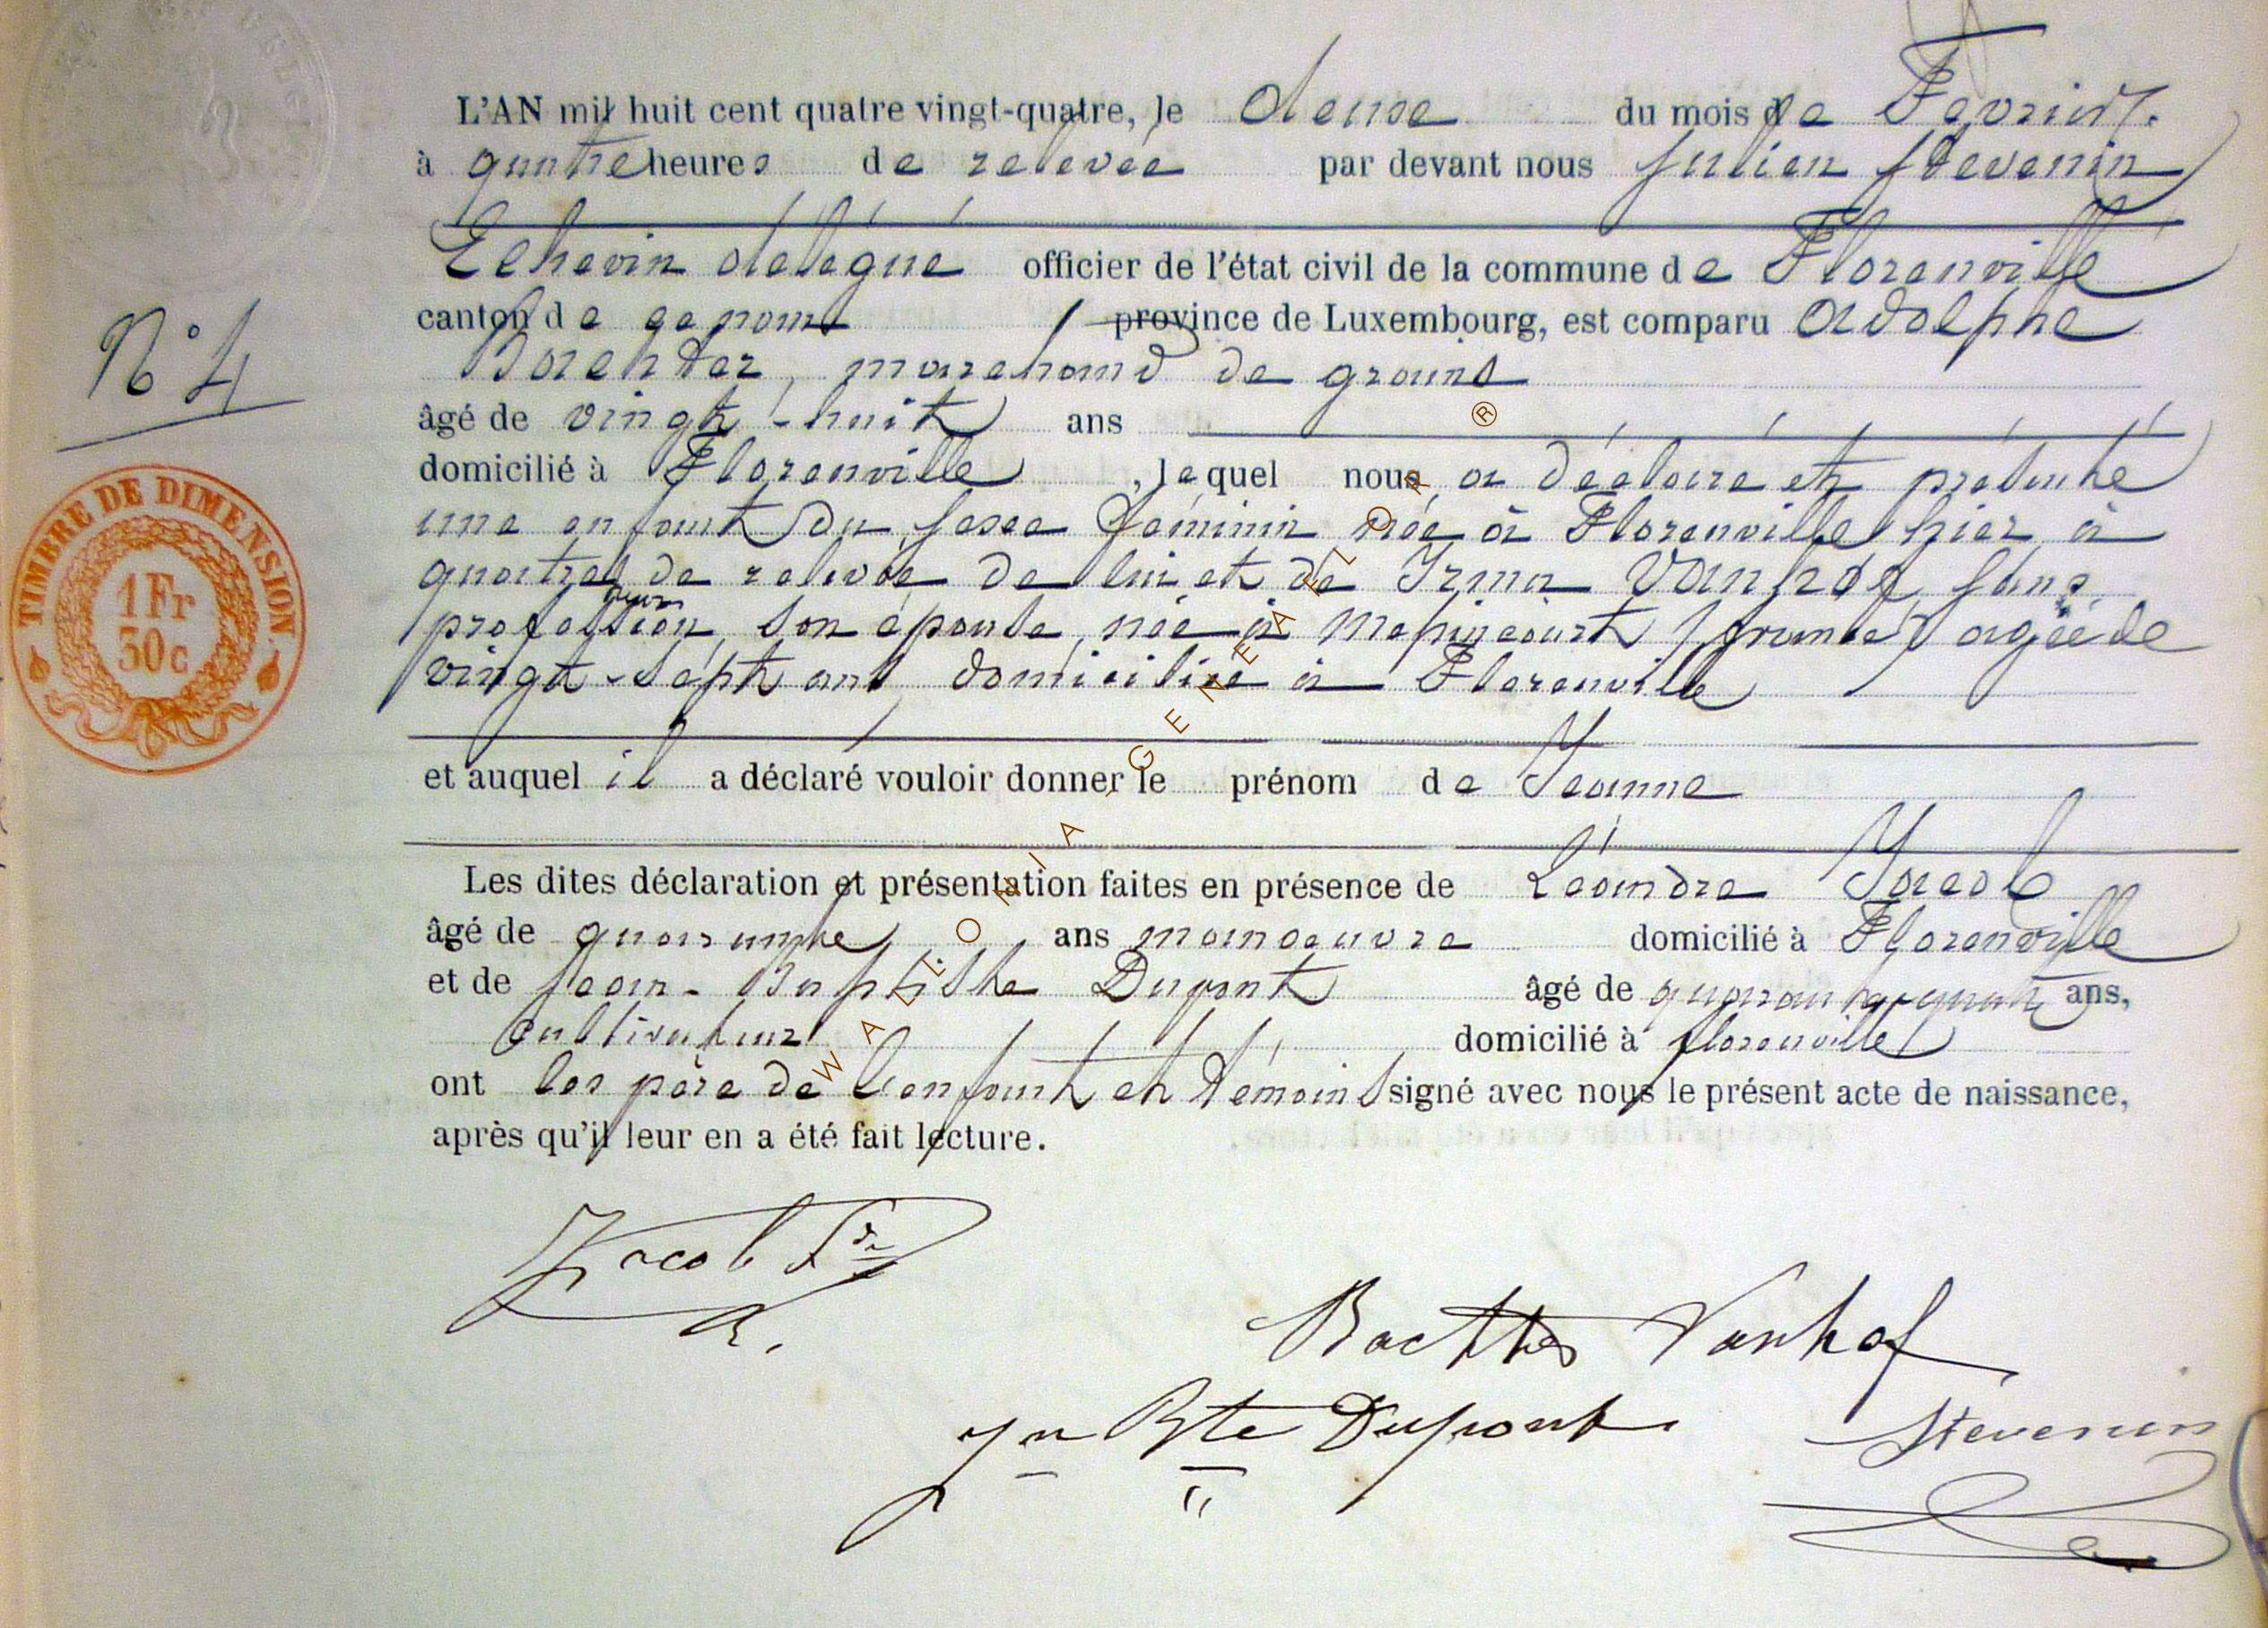 L'AN mil huit cent quatre vingt-quatre, le deux du mois de Fevrier.
à quatre heures de relevée par devant nous Julien Stevenin
Echevin délégué officier de l'état civil de la commune de Florenville
canton de province de Luxembourg, est comparu Adolphe
Bachter, marchand de grains
âgé de vingt-huit ans
domicilié à Florenville, lequel nous a déclaré et présenté
une enfant du sexe féminin née à Florenville hier à
quatre de relevée de lui et de Irma Vanhof sans
profession, son épouse, née à (france) agée de
vingt-sept ans domiciliée à Florenville
et auquel il a déclaré vouloir donner le prénom de Jeanne
Les dites déclaration et présentation faites en présence de Léandre Jacob
N° 4
TIMBRE DE DIMENSION.
1 Fr
30c
âgé de quarante ans manoeuvre domicilié à Florenville
et de Jean-Baptiste Dupont âgé de ans,
cultivateur domicilié à florenville
ont les père de l'enfant et témoins signé avec nous le présent acte de naissance,
après qu'il leur en a été fait lecture.
Jacob
Bachter Vanhof
Jn Bte Dupont
Stevenin
WALLONIA - GENEALOR ®